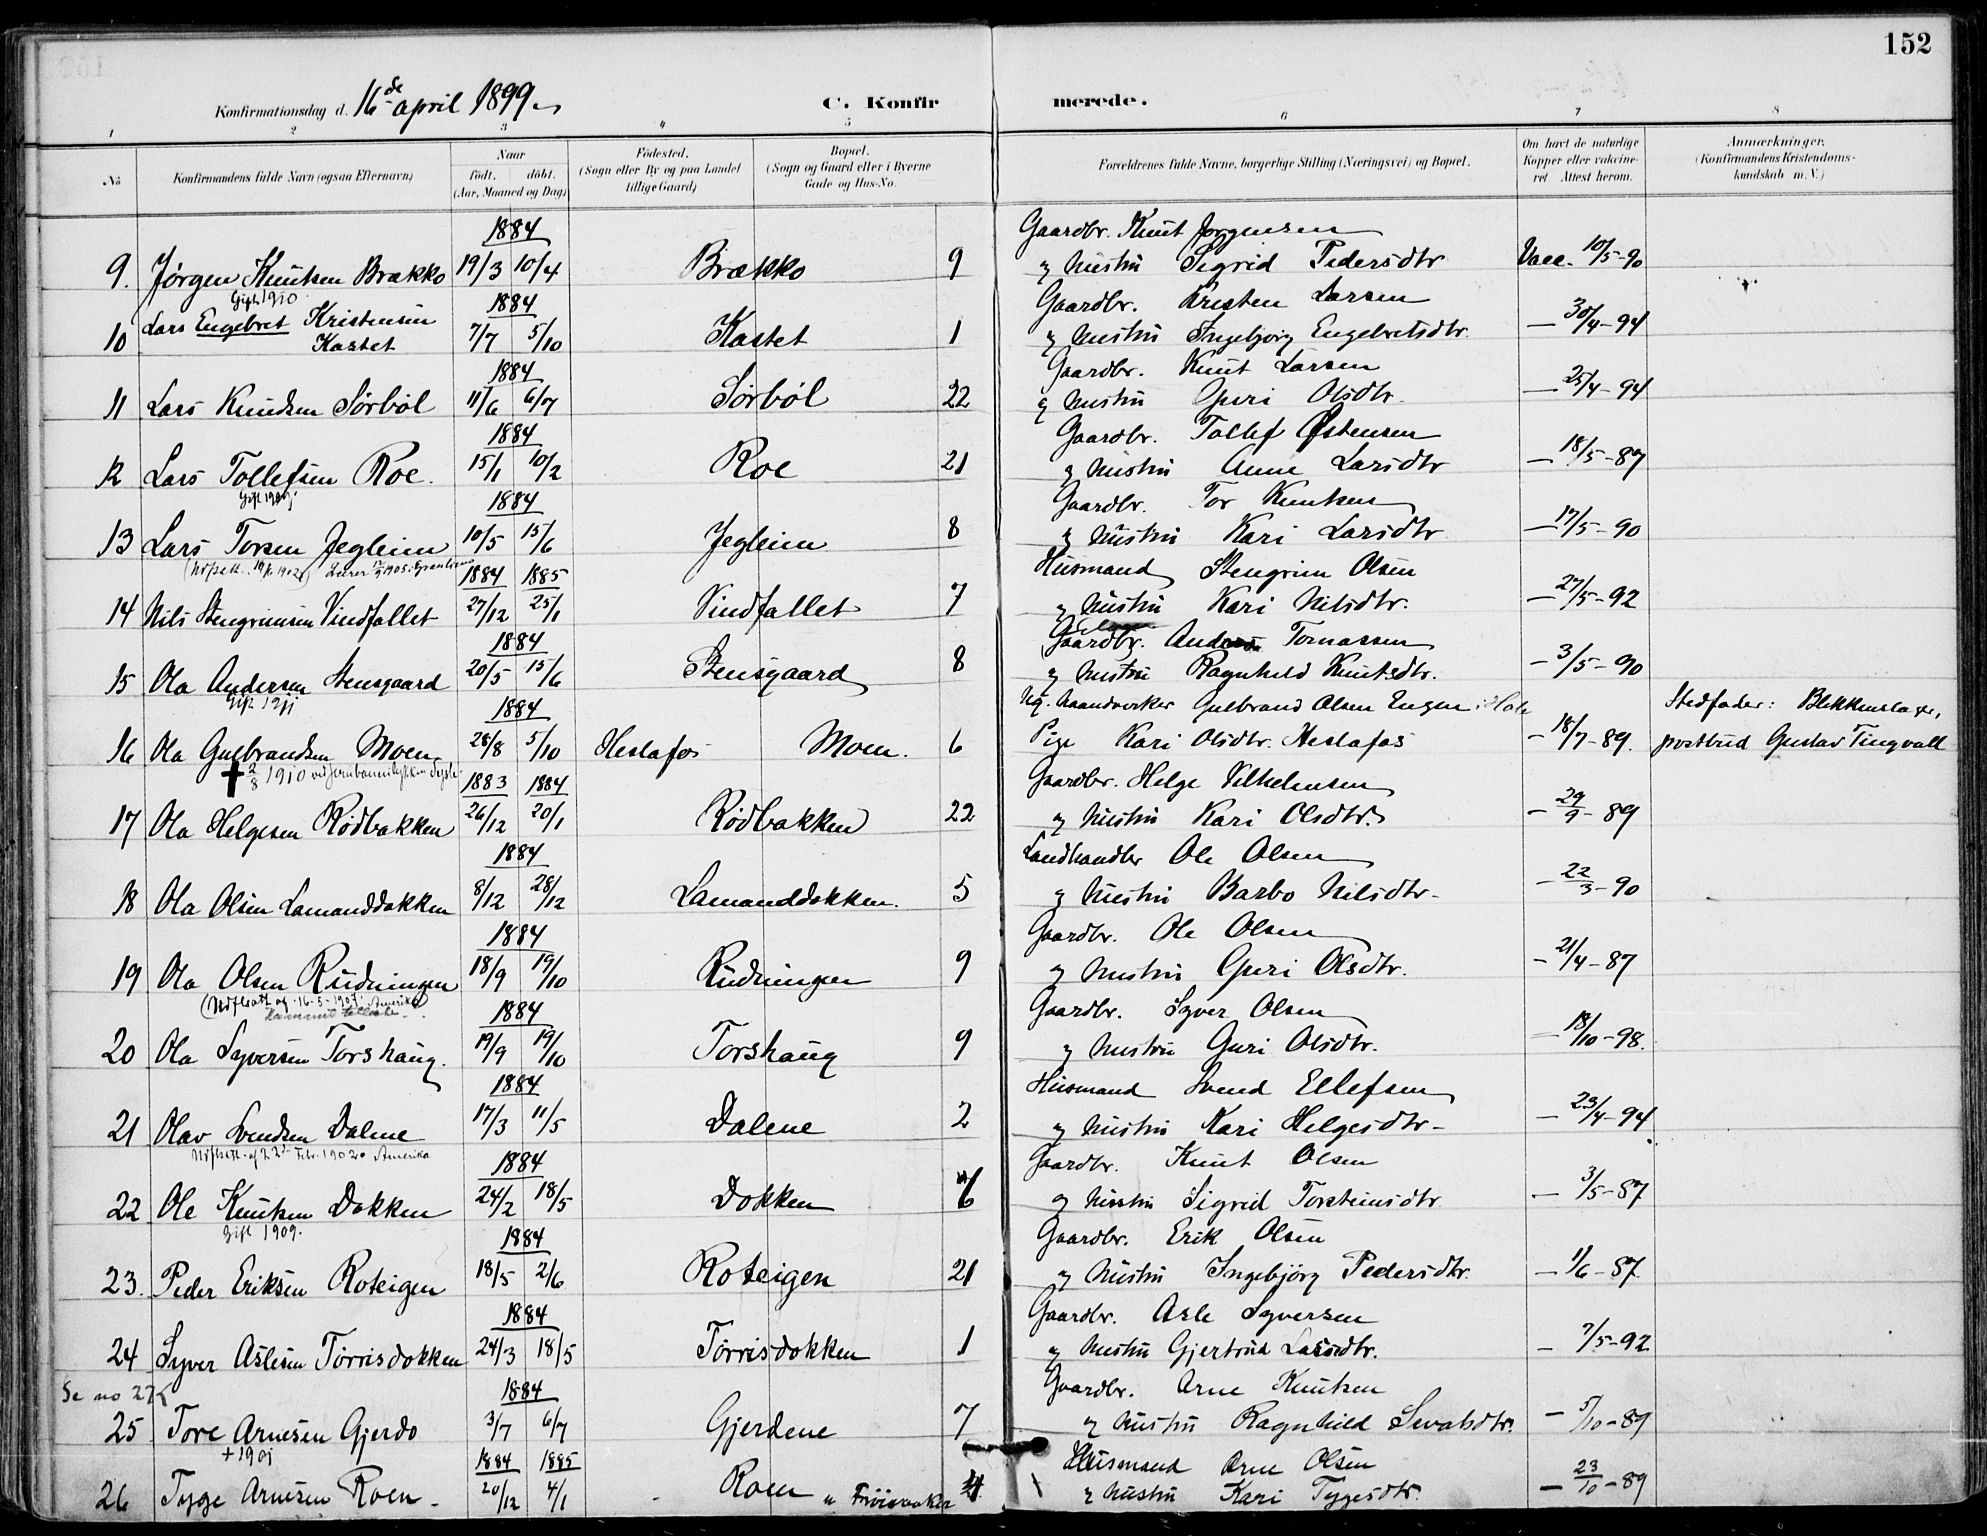 152
Konfirmationsdag d. 16de april 1899.
C. Konfirmerede.
1 2 3 4 5 6 7 8
No
Konfirmandens fulde Navn (ogsaa Efternavn)
Naar
födt. döbt.
(Aar, Maaned og Dag)
Födested.
(Sogn eller By og paa Landet tillige Gaard)
Bopæl.
(Sogn og Gaard eller i Byerne Gade og Hus-No.
Forældrenes fulde Navne, borgerlige Stilling (Næringsvei) og Bopæl.
Om havt de naturlige Kopper eller vakcineret. Attest herom.
Anmærkninger.
(Konfirmandens Kristendomskundskab m. V.)
1884 Gaardbr. Knut Jørgensen
9. Jørgen Knutsen Brækko 19/3 10/4 Brækko 9 og hustru Sigrid Pedersdtr Vacc. 10/5-90
Gift 1910
1884 Gaardbr. Kresten Larsen
10 Lars Engebret Kristensen Kastet 7/7 5/10 Kastet 1 og hustru Ingebjørg Engebretsdtr. — 30/4-94
1884 Gaardbr. Knut Larsen
11 Lars Knudsen Sørbøl 11/6 6/7 Sørbøl 22 og hustru Guri Olsdtr. — 25/4-94
1884 Gaardbr. Tollef Østensen
12 Lars Tollefsen Roe. 15/1 10/2 Roe 21 og hustru Anne Larsdtr — 18/5-87
Gift 1909.
1884 Gaardbr. Tor Knutsen
13 Lars Torsen Jegleim 10/5 15/6 Jegleim 8 og hustru Kari Larsdtr — 17/5-90
1884 1885 Husmand Stengrim Olsen
14 Nils Stengrimsen Vindfallet 27/12 25/1 Vindfallet 7 og hustru Kari Nilsdtr. — 27/5-92
1884 Gaardbr. Anders Tomassen
15 Ola Andersen Stensgaard 20/5 15/6 Stensgaard 8 og hustru Ragnhild Knutsdtr. — 3/5-90
Gift 1911
1884 Ug. haandverker Gulbrand Olsen Engen i Hole Stedfader: Blikkenslager,
16 Ola Gulbrandsen Moen 28/8 5/10 Heslafos Moen. 6 Pige Kari Olsdtr. Heslafos — 18/7-89. postbud Gustav Tingvall
† 2/8 1910 ved jernbaneulykken
1883 1884 Gaardbr. Helge Vilhelmsen
17 Ola Helgesen Rödbakken 26/12 20/1 Rödbakken 22 og hustru Kari Olsdtr. — 29/9-89
1884 Landhandler Ole Olsen
18 Ola Olsen Lamanddokken 8/12 28/12 Lamanddokken. 5 og hustru Barbo Nilsdtr — 22/3-90
1884 Gaardbr. Ole Olsen
19 Ola Olsen Rudningen 18/9 19/10 Rudningen 9 og hustru Guri Olsdtr. — 21/4-87
(Udflsatt. af 16-5-1907. Amerika)
1884 Gaardbr. Syver Olsen
20 Ola Syversen Torshaug. 19/9 19/10 Torshaug 9 og hustru Guri Olsdtr. — 18/10-98.
1884 Husmand Svend Ellefsen
21 Olav Svendsen Dalene 17/3 11/5 Dalene 2 og hustru Kari Helgesdtr — 23/4-94
Udflsatt. af 22 Febr. 1902. Amerika
1884 Gaardbr. Knut Olsen
22 Ole Knutsen Dokken 24/2 18/5 Dokken 6 og hustru Sigrid Torsteinsdtr — 3/5-87
Gift 1909.
1884 Gaardbr. Erik Olsen
23. Peder Eriksen Roteigen 18/5 2/6 Roteigen 21 og hustru Ingebjörg Pedersdtr. — 1/6-87
1884 Gaardbr. Asle Syversen
24 Syver Aslesen Törrisdokken 24/3 18/5 Törrisdokken 1 og hustru Gjertrud Larsdtr. — 7/5-92
Se no 27
1884 Gaardbr. Arne Knutsen
25 Tore Arnesen Gjerdo 3/7 6/7 Gjerdene 7 og hustru Ragnhild Sevatsdtr. — 5/10-89
+ 1901
1884 1885 Husmand Arne Olsen
26 Tygge Arnesen Roen 20/12 4/1 Roen 4 og hustru Kari Tygesdtr. — 23/10-89